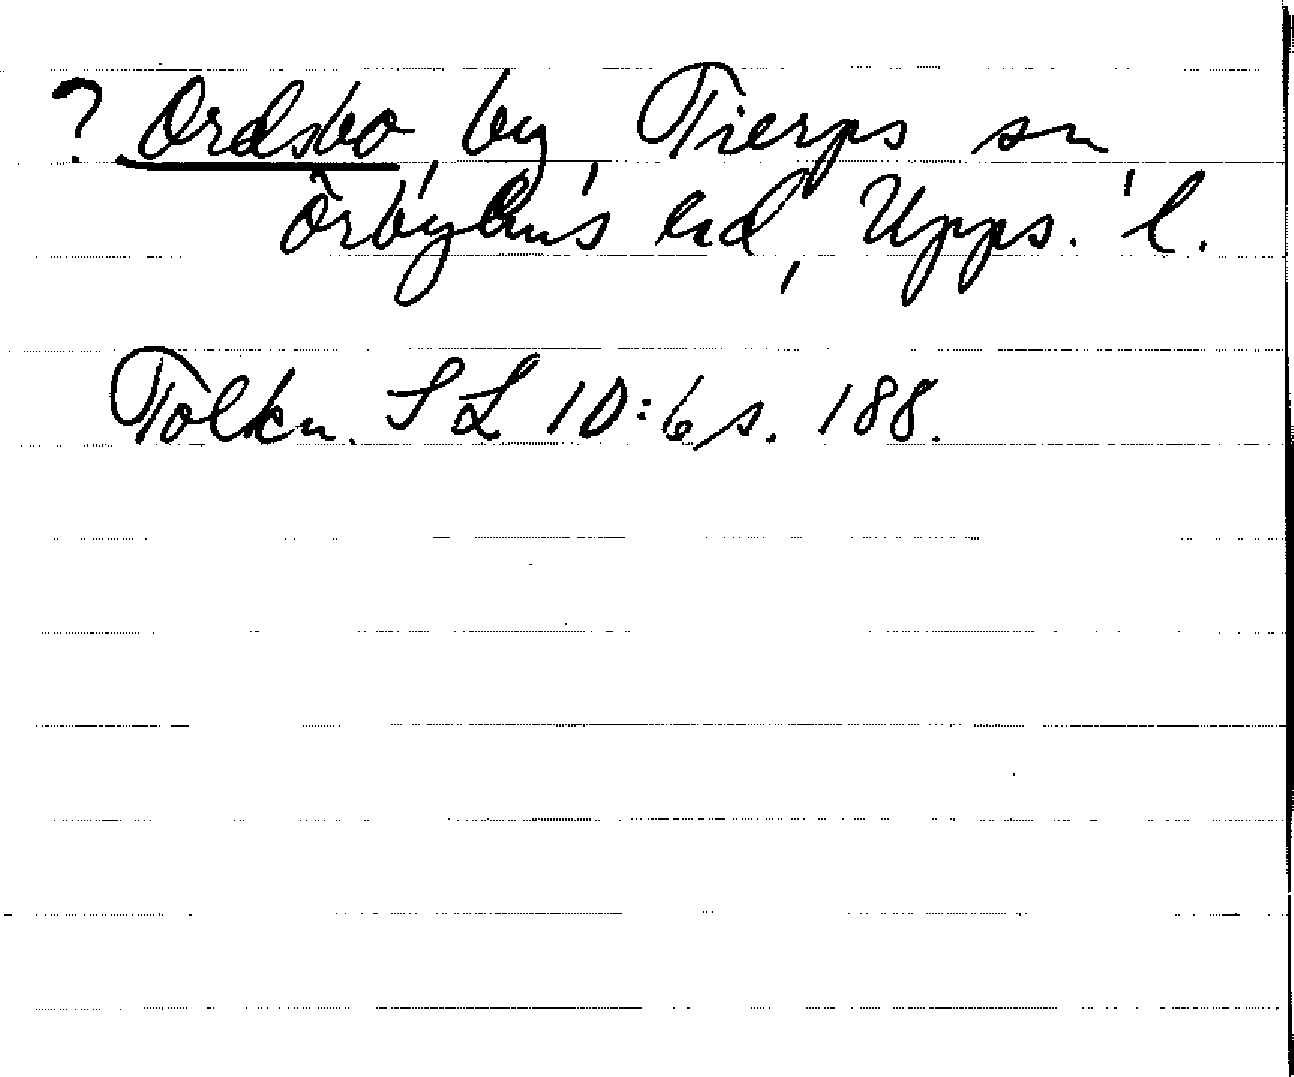 ? Ordsbo, by, Tierps sn,
Örbyhus hd, Upps. l.
Tolkn. SL 10:6 s. 188.